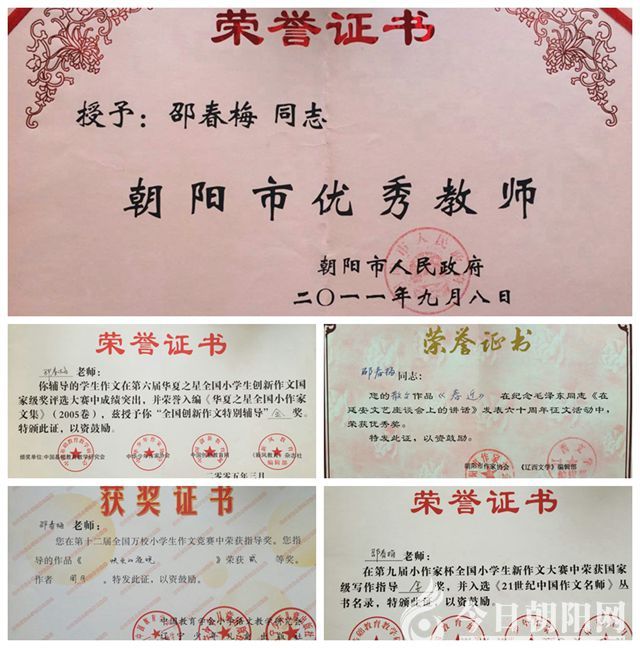 荣誉证书
授予：邵春梅 同志
朝阳市优秀教师
朝阳市人民政府
二〇一一年九月八日
荣誉证书
邵春梅 老师：
你辅导的学生作文在第六届华夏之星全国小学生创新作文国
家级奖评选大赛中成绩突出，并荣誉入编《华夏全国小作家
文集》（2005卷），兹授予你“全国创新作文特别辅导”金 奖。
特颁此证，以资鼓励。
二零零五年三月
荣誉证书
邵春梅 同志：
您的散文作品《春近》在纪念毛泽东同志《在
延安文艺座谈会上的讲话》发表六十周年征文活动中，
荣获优秀奖。
特发此证，以资鼓励。
朝阳市作家协会 《辽西文学》编辑部
获奖证书
邵春梅 老师：
您在第十二届全国万校小学生作文竞赛中荣获指导奖。您指
导的作品《 》荣获 贰 等奖。
作者 特发此证，以资鼓励。
中国教育学会小学语文教学研究会
辽宁少年儿童出版社
荣誉证书
邵春梅 老师：
在第九届小作家杯全国小学生新作文大赛中荣获国家
级写作指导 金 奖，并入选《21世纪中国作文名师》丛
书名录，特颁此证，以资鼓励。
今日朝阳网